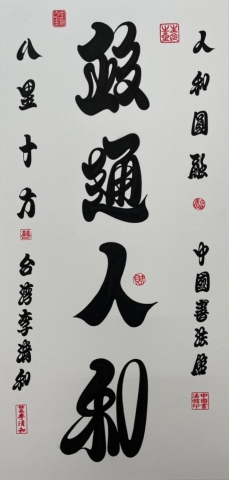 人和圓融
中國書法館
政通人和
八里十方
台灣李清和